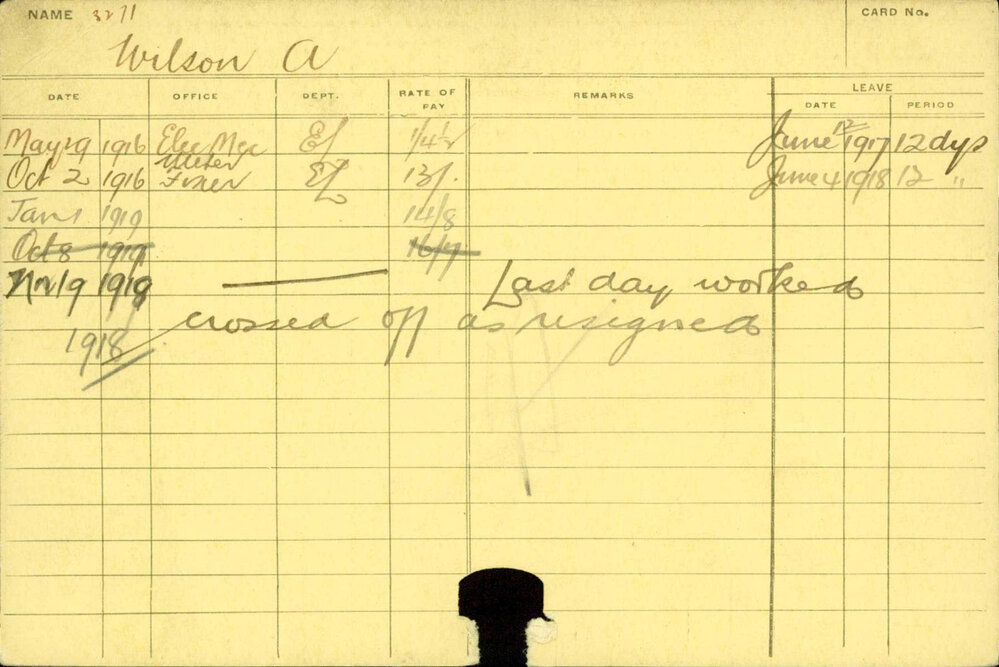 NAME 3271 CARD No.
Wilson A
DATE OFFICE DEPT. RATE OF PAY REMARKS LEAVE
DATE PERIOD
May 29 1916 Elec Mec EL 1/4½ June 12 1917 12 dys
Oct 2 1916 Meter Fixer EL 13/. June 4 1918 12 "
Jan 1 1919 14/8
Oct 8 1919 16/7
Nov 19 1918 Last day worked
1918 crossed off as resigned